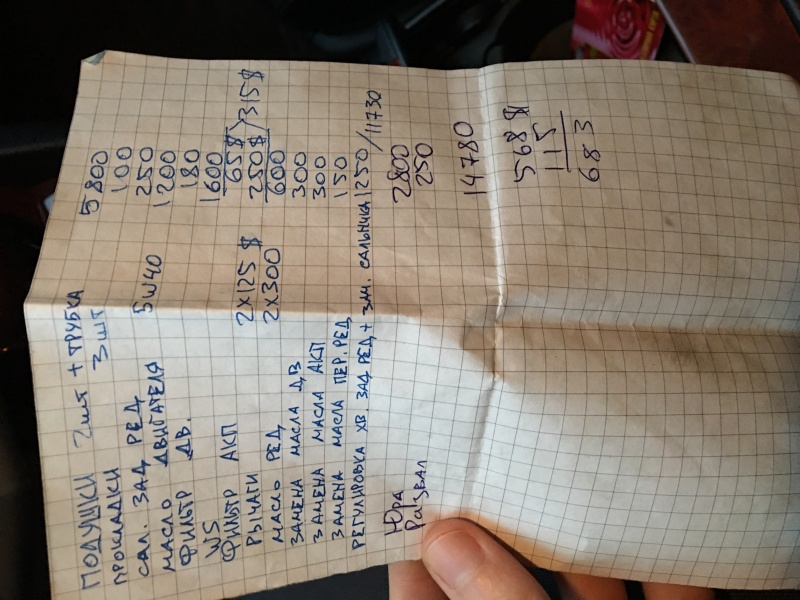 ПОДУШКИ 2шт + ТРУБКА 5800
ПРОКЛАДКИ 3шт 100
САЛ. ЗАД РЕД 250
МАСЛО ДВИГАТЕЛЯ 5W40 1200
ФИЛЬТР ДВ. 180
WS 1600
ФИЛЬТР АКП 65$
РЫЧАГИ 2×125$ 250$ / 315$
МАСЛО РЕД 2×300 600
ЗАМЕНА МАСЛА ДВ 300
ЗАМЕНА МАСЛА АКП 300
ЗАМЕНА МАСЛА ПЕР. РЕД 150
РЕГУЛИРОВКА ХВ. ЗАД РЕД + ЗАМ. САЛЬНИКА 1250 / 11730
Юра 2800
Развал 250
14780
568$
115
683